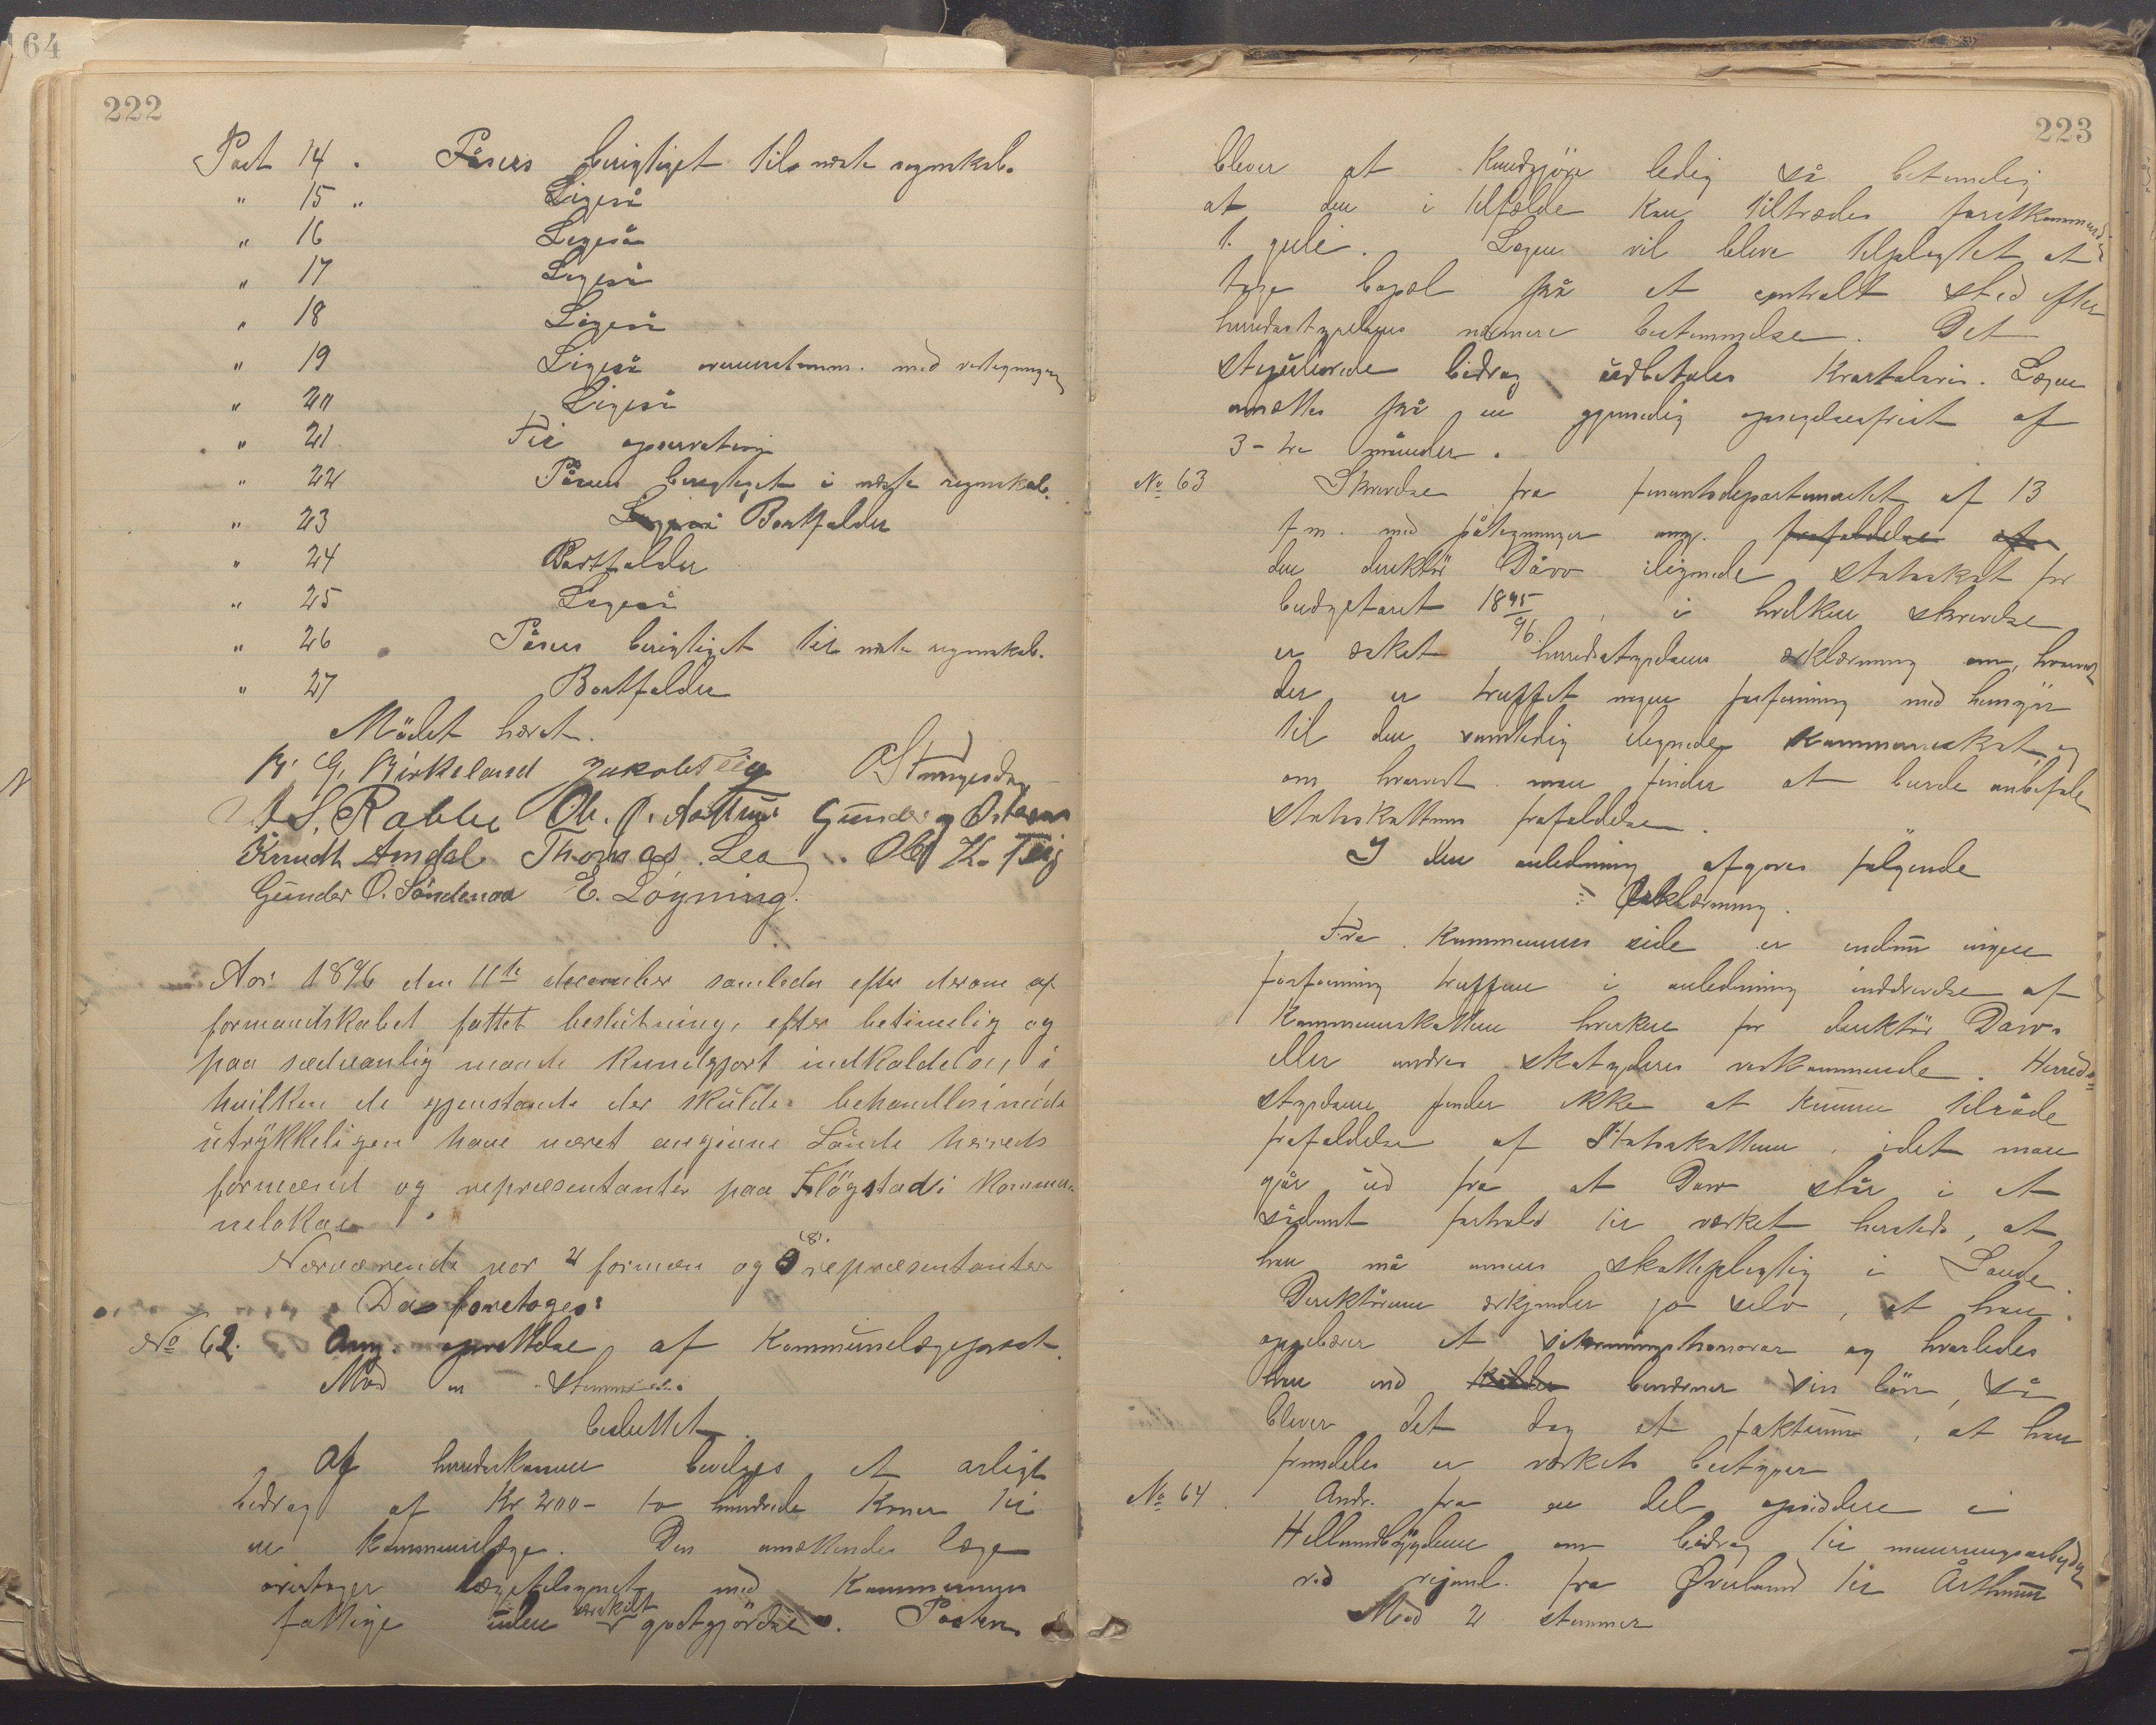 164
222
Post 14. Påsees berigtiget til næste regnskab.
" 15 " Ligeså
" 16 Ligeså
" 17 Ligeså
" 18 Ligeså
" 19 Ligeså overensstemm. med vedtegningen
" 20 Ligeså
" 21 Til observation
" 22 Påsees berigtiget i næste regnskab.
" 23 Ligeså Bortfalder
" 24 Bortfalder
" 25 Ligeså
" 26 Påsees berigtiget til næste regnskab.
" 27 Bortfalder
Mödet hævet.
K. G. Birkeland Jakob Teig
A S. Rabbe Ole Gunder
Knudt Amdal Thomas Lea. Ole K. Teig
Gunder O. Söndenaa E. Löyning.
Aar 1896 den 11te december samledes efter derom af
formandskabet fattet beslutning, efter betimelig og
paa sædvanlig maade kundgjort indkaldelse, i
hvilken de gjenstande der skulde behandles
utrykkeligen have været angivne Sände herreds
formænd og repræsentanter paa Flögstad i kommu-
nelokale.
(8).
Nærværende var 4 formæn og repræsentanter
Da foretoges:
No 62. Ang. oprettelse af Kommunelægepost.
Mod en stemme
besluttet
Af herredskassen bevilges et årligt
bidrag af Kr 200- to hundrede kroner til
en kommunelæge. Den ansættendes læge
overtager lægetilsynet med kommunens
særskilt
fattige uden godtgjördelse. Posten
223
bliver at kundgjöre ledig så betimelig
at den i tilfælde kan tiltrædes förstkommende
1. juli. Lægen vil blive tilpligtet at
tage bopæl på et centralt sted efter
herredsstyrelsens nærmere bestemmelse. Det
stipulerede bidrag udbetales kvartalsvis. Lægen
ansættes på en gjensidig opsigelsesfrist af
3- tre måneder.
No 63 Skrivelse fra finantsdepartementet af 13
f.m. med påtegninger ang. frafaldelse af
den direktör Daw ilignede statsskat for
budgetåret 1895/96, i hvilken skrivelse
er æsket herredsstyrelsens erklæring om, hvorvidt
der er truffet nogen forföining med hensyn
til den samtidig ilignede kommuneskat og
om hvorvidt man finder at burde anbefale
statsskattens frafaldelse.
I den anledning afgaves fölgende
Erklæring.
Fra kommunens side er endnu ingen
forföining truffen i anledning inddrivelse af
kommuneskatten hverken for direktör Daws
eller andres skatyderes vedkommende. Herreds-
styrelsen finder ikke at kunne tilråde
frafaldelse af Statsskatten, idet man
går ud fra at Daw står i et
sådant forhold til værket herstedes, at
han må ansees skattepligtig i Sande.
Direktören erkjender jo selv, at han
oppebærer et honorar og hvorledes
han end benævner sin lön, så
bliver det dog et faktum, at han
fremdeles er værkets bestyrer
No 64. Andr. fra en del opsiddere i
Hellandsbygden om bidrag til
ved veianl. fra Överland til Årthun
Mod 2 stemmer